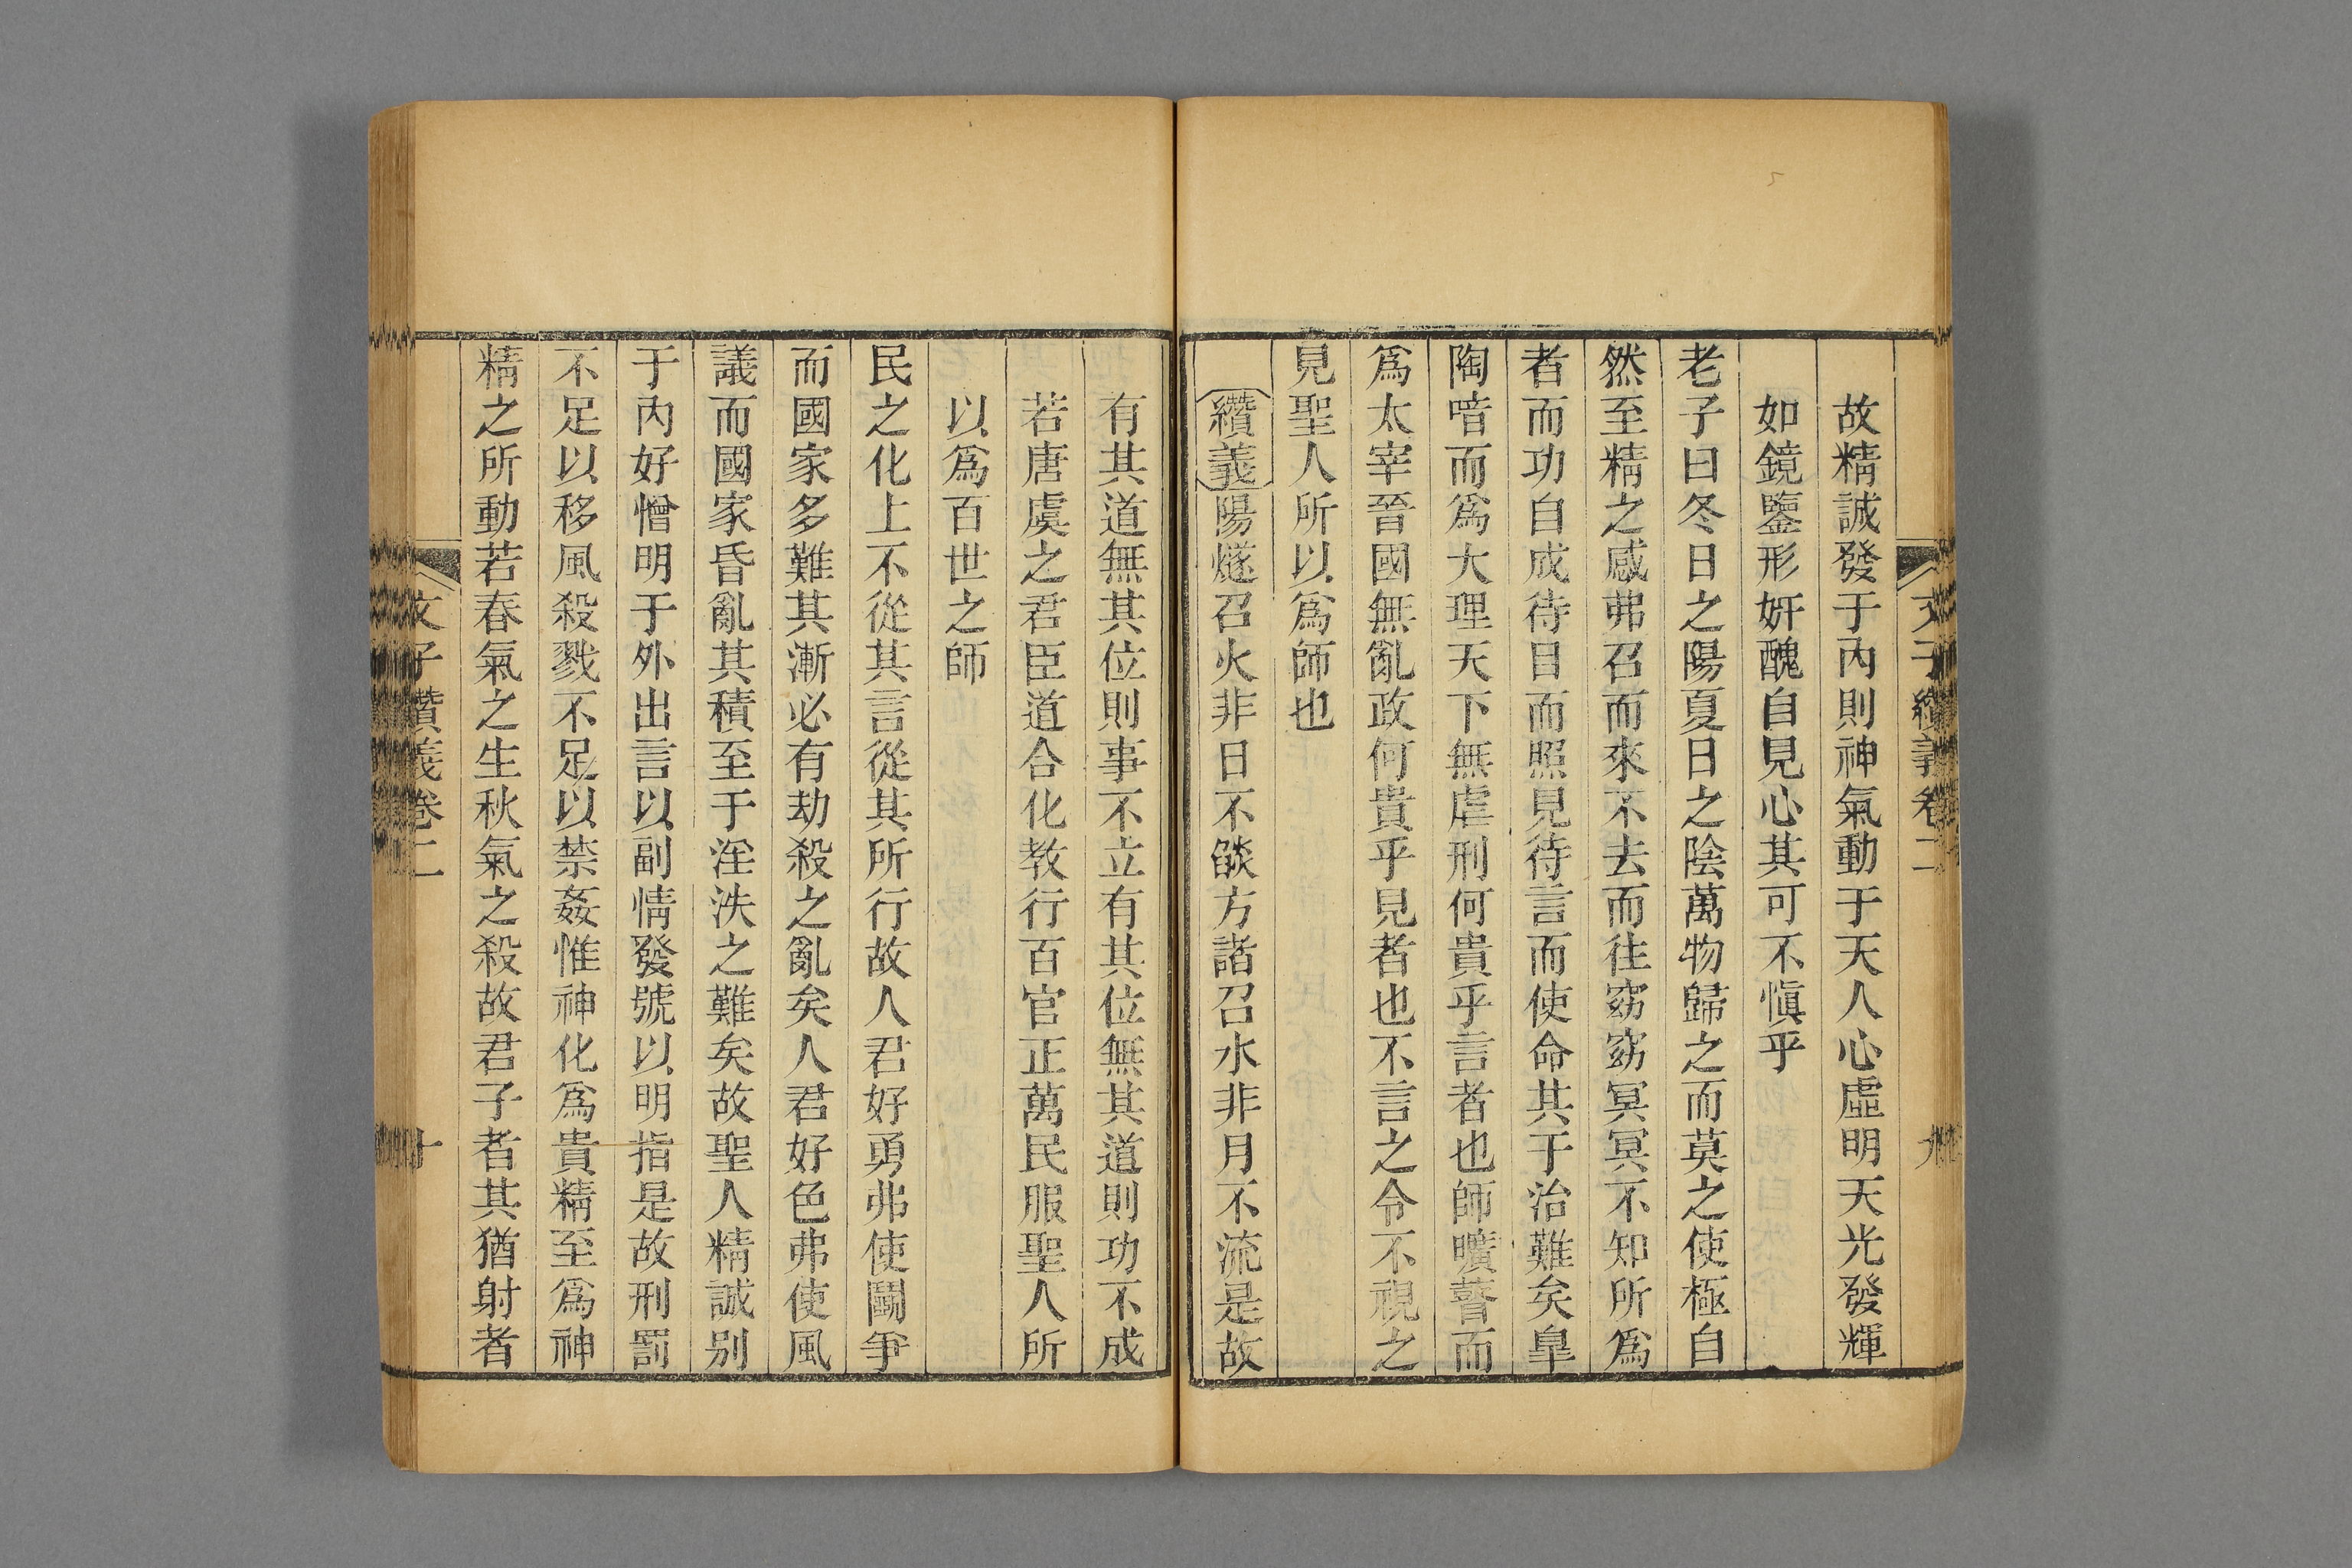 文子纘義卷二 九
故精誠發于內則神氣動于天人心虛明天光發輝
如鏡鑒形姸醜自見心其可不愼乎
老子曰冬日之陽夏日之陰萬物歸之而莫之使極自
然至精之感弗召而來不去而往窈窈冥冥不知所爲
者而功自成待目而照見待言而使命其于治難矣臯
陶喑而爲大理天下無虐刑何貴乎言者也師曠瞽而
爲太宰晉國無亂政何貴乎見者也不言之令不視之
見聖人所以爲師也
纘義陽燧召火非日不燄方諸召水非月不流是故
有其道無其位則事不立有其位無其道則功不成
若唐虞之君臣道合化教行百官正萬民服聖人所
以爲百世之師
民之化上不從其言從其所行故人君好勇弗使鬭爭
而國家多難其漸必有劫殺之亂矣人君好色弗使風
議而國家昏亂其積至于淫泆之難矣故聖人精誠别
于內好憎明于外出言以副情發號以明指是故刑罰
不足以移風殺戮不足以禁姦惟神化爲貴精至爲神
精之所動若春氣之生秋氣之殺故君子者其猶射者
文子纘義卷二 十